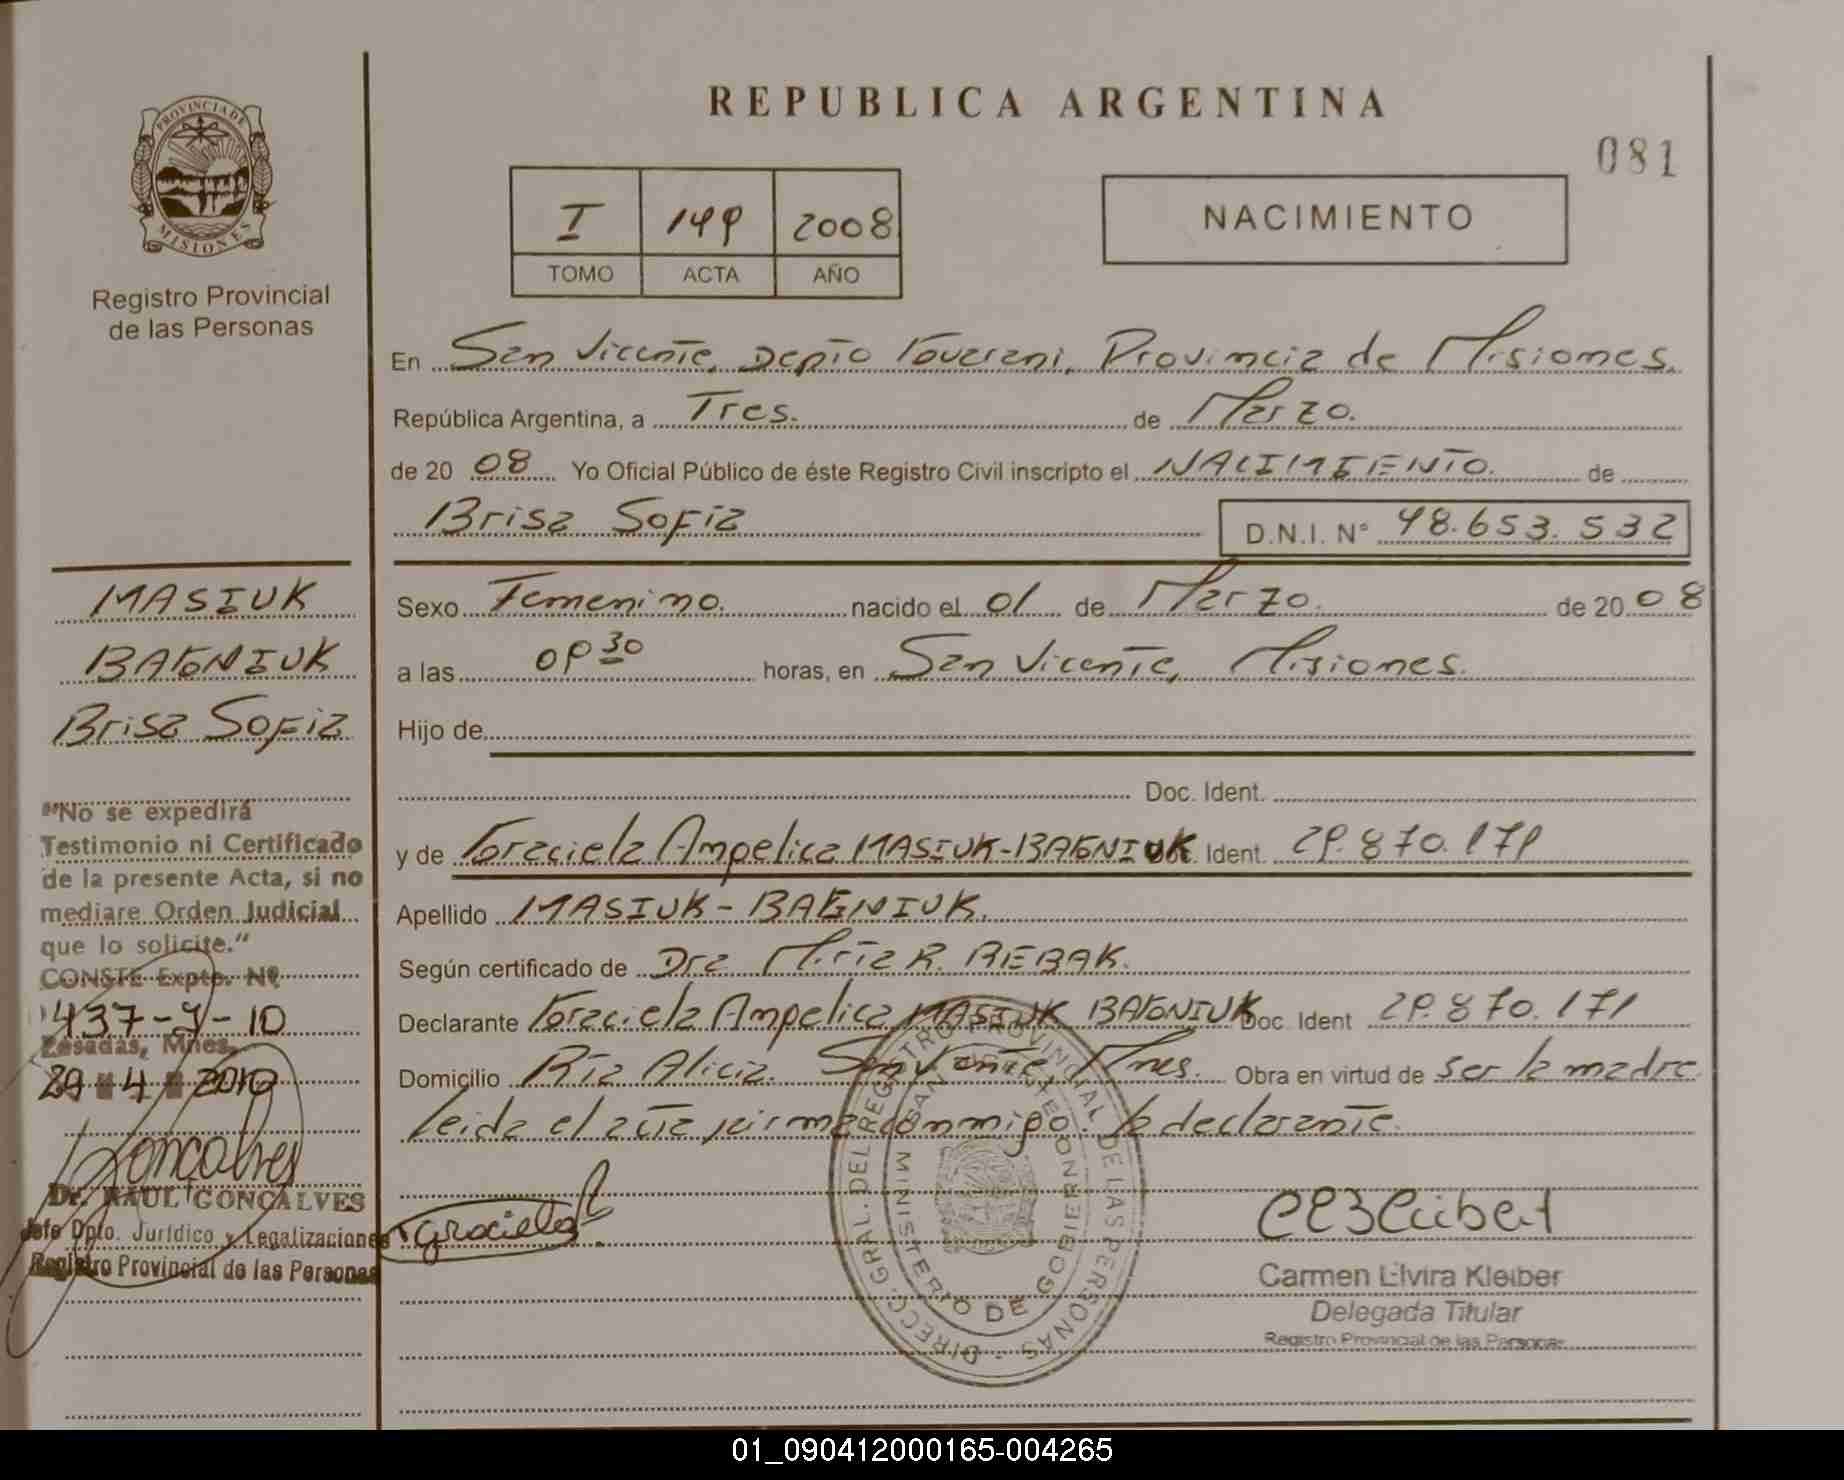 PROVINCIA DE
MISIONES
Registro Provincial
de las Personas
REPUBLICA ARGENTINA
081
I 149 2008
TOMO ACTA AÑO
NACIMIENTO
En San Vicente, Depto Guarani, Provincia de Misiones.
República Argentina, a Tres. de Marzo.
de 20 08 Yo Oficial Público de éste Registro Civil inscripto el NACIMIENTO. de
Brisa Sofia D.N.I. N° 48.653.532
Sexo Femenino. nacido el 01 de Marzo. de 20 08
a las 09 30 horas, en San Vicente, Misiones.
Hijo de
Doc. Ident.
y de Graciela Angelica MASIUK-BAGNIUK Doc. Ident. 29.870.171
Apellido MASIUK - BAGNIUK.
Según certificado de Dra Mirta R. REBAK.
Declarante Graciela Angelica MASIUK BAGNIUK Doc. Ident 29.870.171
Domicilio Ria Alicia. San Vicente, Mnes. Obra en virtud de ser la madre
leida el acta firma conmigo. la declarante.
Graciela
Carmen Elvira Kleiber
Delegada Titular
Registro Provincial de las Personas
DIRECC. GRAL. DEL REGISTRO PROVINCIAL DE LAS PERSONAS
MINISTERIO DE GOBIERNO
SAN VICENTE
MASIUK
BAGNIUK
Brisa Sofia
"No se expedirá
Testimonio ni Certificado
de la presente Acta, si no
mediare Orden Judicial
que lo solicite."
CONSTE Expte. Nº
1437-J-10
Posadas, Mnes.
29 4 2010
Goncalves
Dr. RAUL GONCALVES
Jefe Dpto. Jurídico y Legalizaciones
Registro Provincial de las Personas
01_090412000165-004265